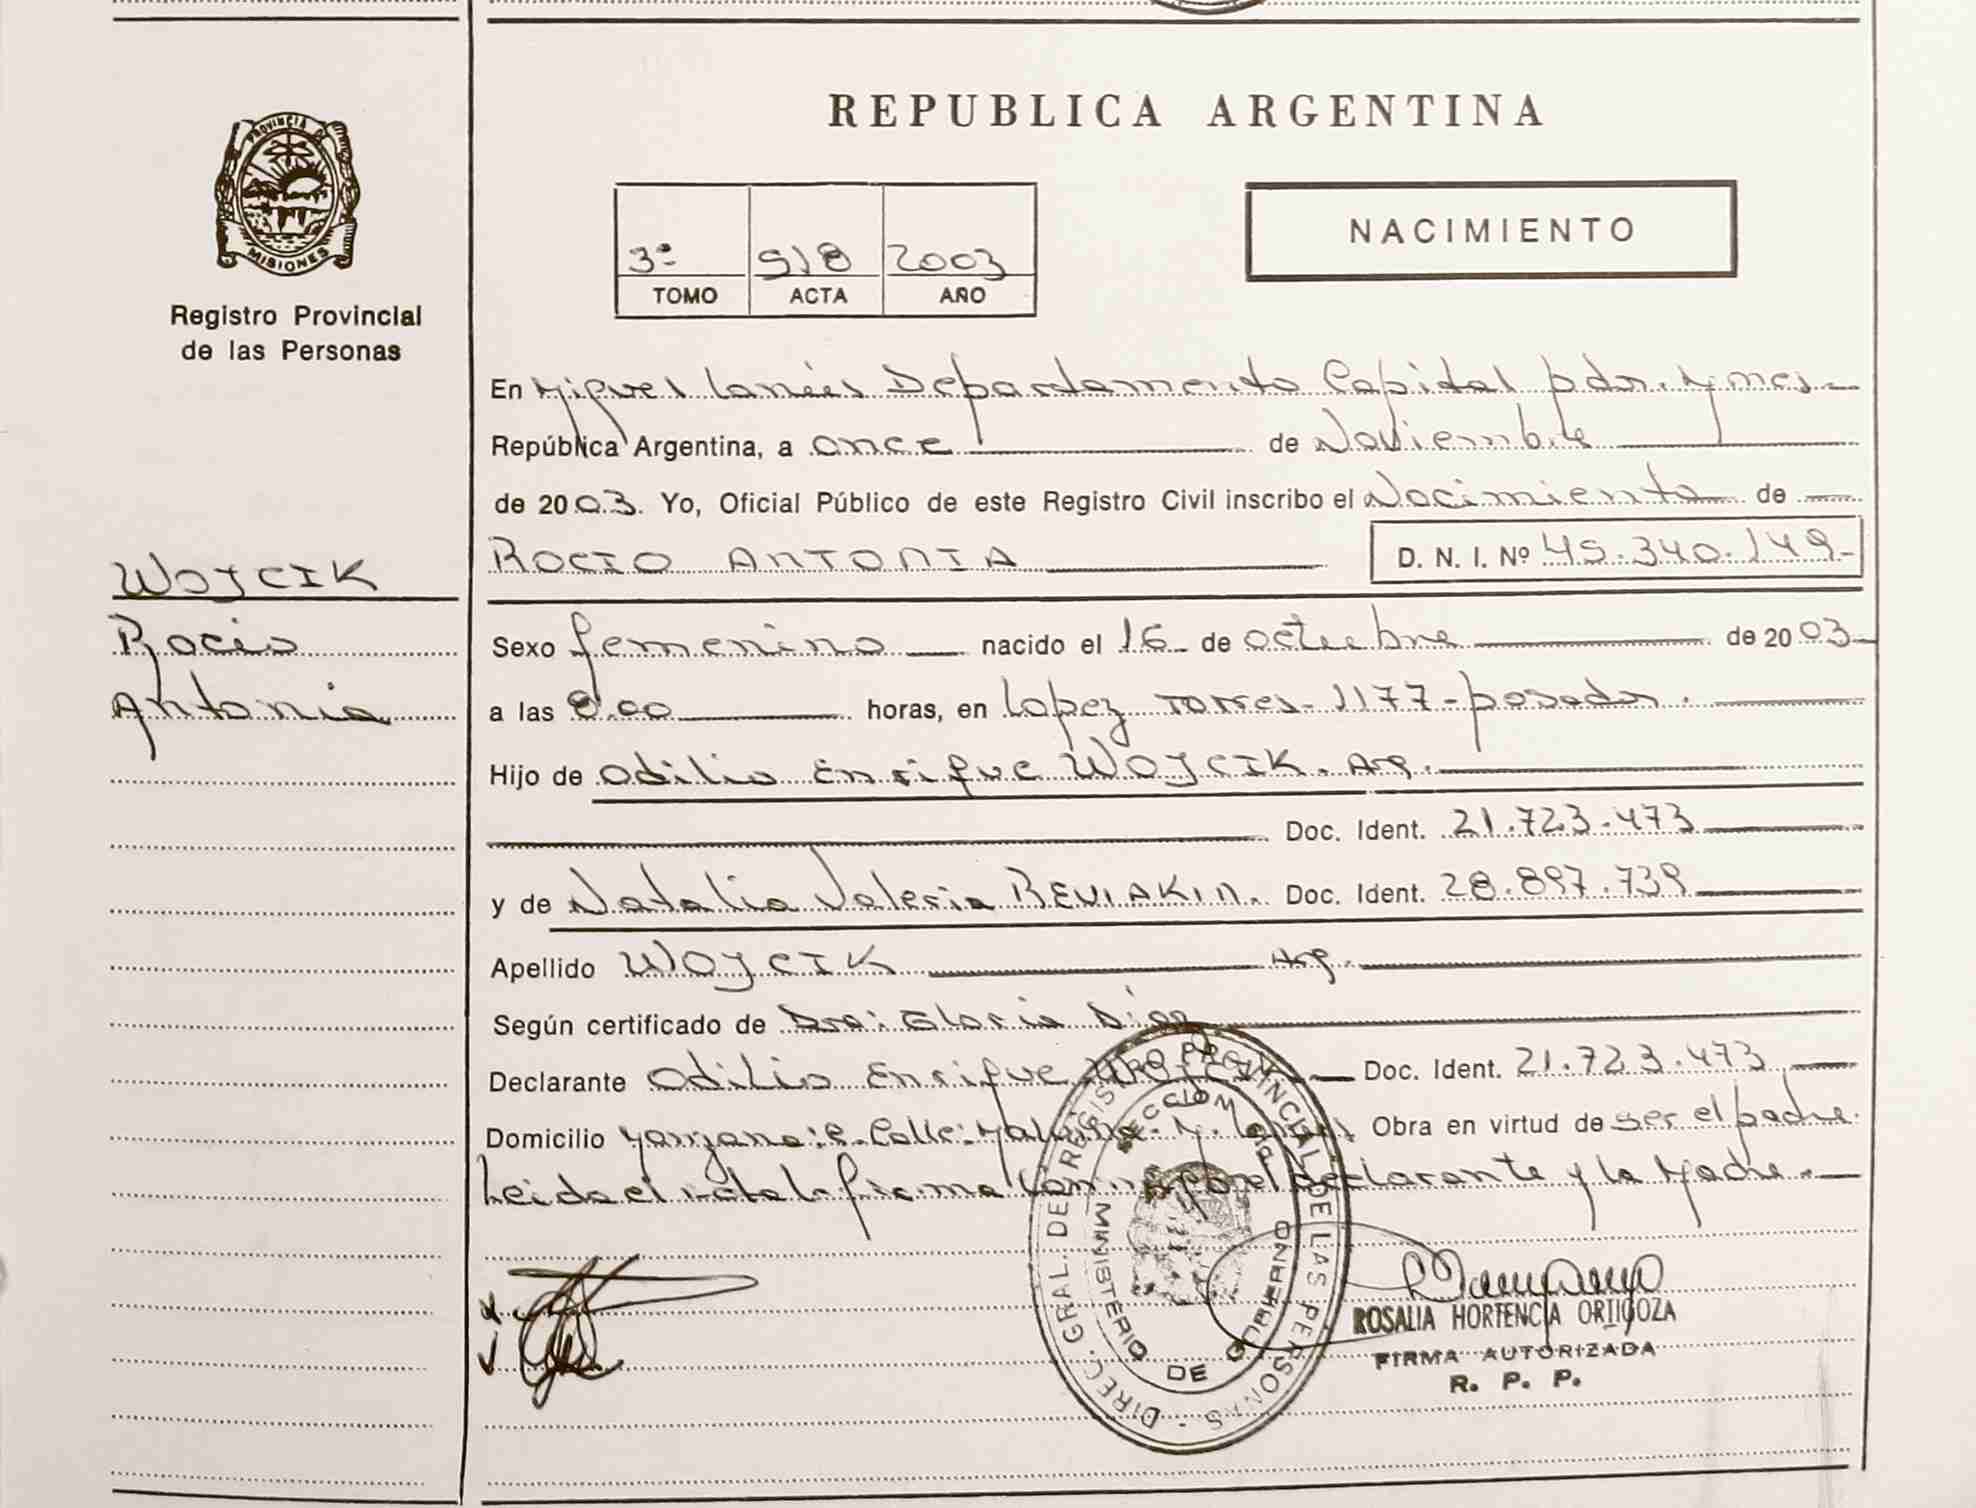 REPUBLICA ARGENTINA
PROVINCIA DE
MISIONES
Registro Provincial
de las Personas
3º 518 2003
TOMO ACTA AÑO
NACIMIENTO
En Miguel Lanús Departamento Capital pdas. Mnes
República Argentina, a once de Noviembre
de 2003. Yo, Oficial Público de este Registro Civil inscribo el Nacimiento de
WOJCIK
Rocio
Antonia
ROCIO ANTONIA D. N. I. Nº 45.340.149-
Sexo femenino nacido el 16 de octubre de 2003
a las 8.00 horas, en Lopez Torres-1177-posadas.
Hijo de Odilio Enrique WOJCIK. Arg.
Doc. Ident. 21.723.473
y de Natalia Valeria REVIAKIN. Doc. Ident. 28.897.739
Apellido WOJCIK Arg.
Según certificado de Dra: Gloria Díaz
Declarante Odilio Enrique WOJCIK Doc. Ident. 21.723.473
Domicilio Manzana: Calle: M. Lanús Obra en virtud de ser el padre.
Leida el acta la firma conmigo el declarante y la Madre.
DIREC. GRAL. DE REGISTRO PROVINCIAL DE LAS PERSONAS
MINISTERIO DE GOBIERNO
ROSALIA HORTENCIA ORTIGOZA
FIRMA AUTORIZADA
R. P. P.